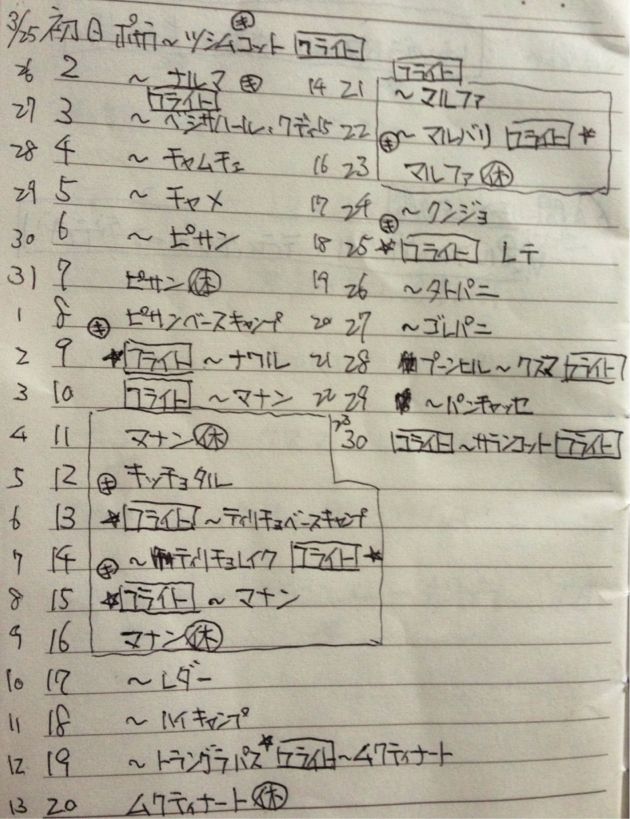 3/25 初日 ポカラ～ツシムコット フライト
㋖
26 2 ～ナルマ ㋖
27 3 フライト ～ベシサハール、クディ
28 4 ～チャムチェ
29 5 ～チャメ
30 6 ～ピサン
31 7 ピサン ㊡
1 8 ㋖ ピサンベースキャンプ
2 9 ★フライト ～ナワル
3 10 フライト ～マナン
4 11 マナン ㊡
5 12 ㋖ キッチョタル
6 13 ★フライト ～ティリチョベースキャンプ
7 14 ㋖ ～ティリチョレイク フライト★
8 15 ★フライト ～マナン
9 16 マナン ㊡
10 17 ～レダー
11 18 ～ハイキャンプ
12 19 ～トラングラパス★フライト～ムクティナート
13 20 ムクティナート ㊡
14 21 フライト ～マルファ
15 22 ㋖ ～マルバリ フライト★
16 23 マルファ ㊡
17 24 ㋖ ～クンジョ
18 25 ★フライト レテ
19 26 ～タトパニ
20 27 ～ゴレパニ
21 28 プーンヒル～クスマ フライト
22 29 ～パンチャッセ
23 30 フライト～サランコット フライト